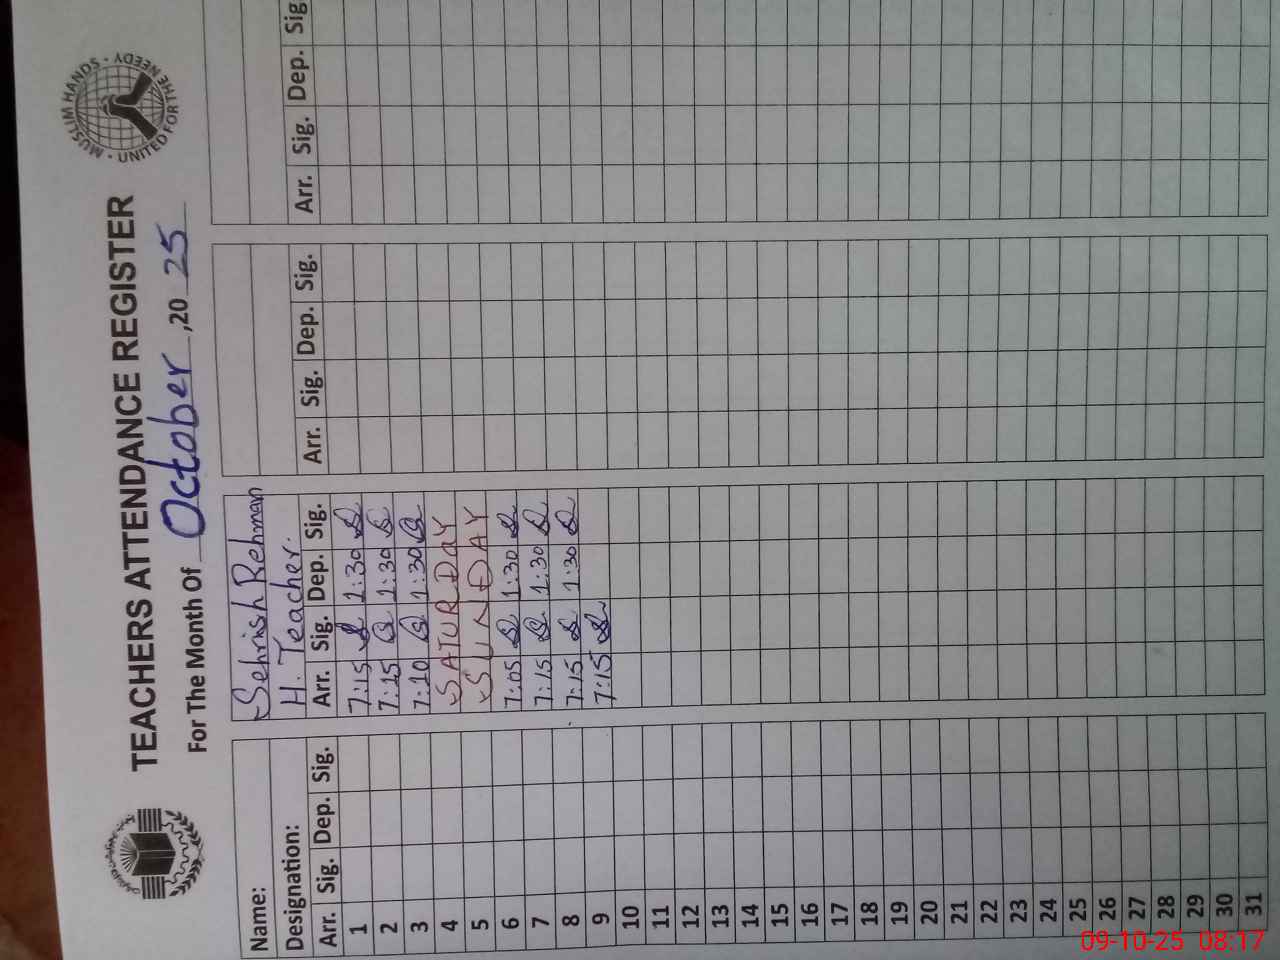 TEACHERS ATTENDANCE REGISTER
MUSLIM HANDS · UNITED FOR THE NEEDY ·
For The Month Of October ,20 25
Name: Sehrish Rehman
Designation: H. Teacher.
Arr. Sig. Dep. Sig. Arr. Sig. Dep. Sig. Arr. Sig. Dep. Sig. Arr. Sig. Dep. Sig
1 7:15 1:30
2 7:15 1:30
3 7:10 1:30
4 SATURDaY
5 SUNDAY
6 7:05 1:30
7 7:15 1:30
8 7:15 1:30
9 7:15
10
11
12
13
14
15
16
17
18
19
20
21
22
23
24
25
26
27
28
29
30
31
09-10-25 08:17